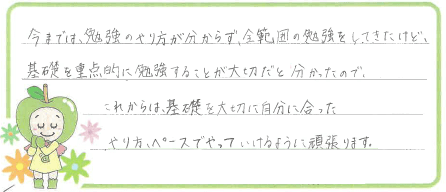 今までは、勉強のやり方が分からず、全範囲の勉強をしてきたけど、
基礎を重点的に勉強することが大切だと分かったので、
これからは、基礎を大切に自分に合った
やり方、ペースでやっていけるように頑張ります。